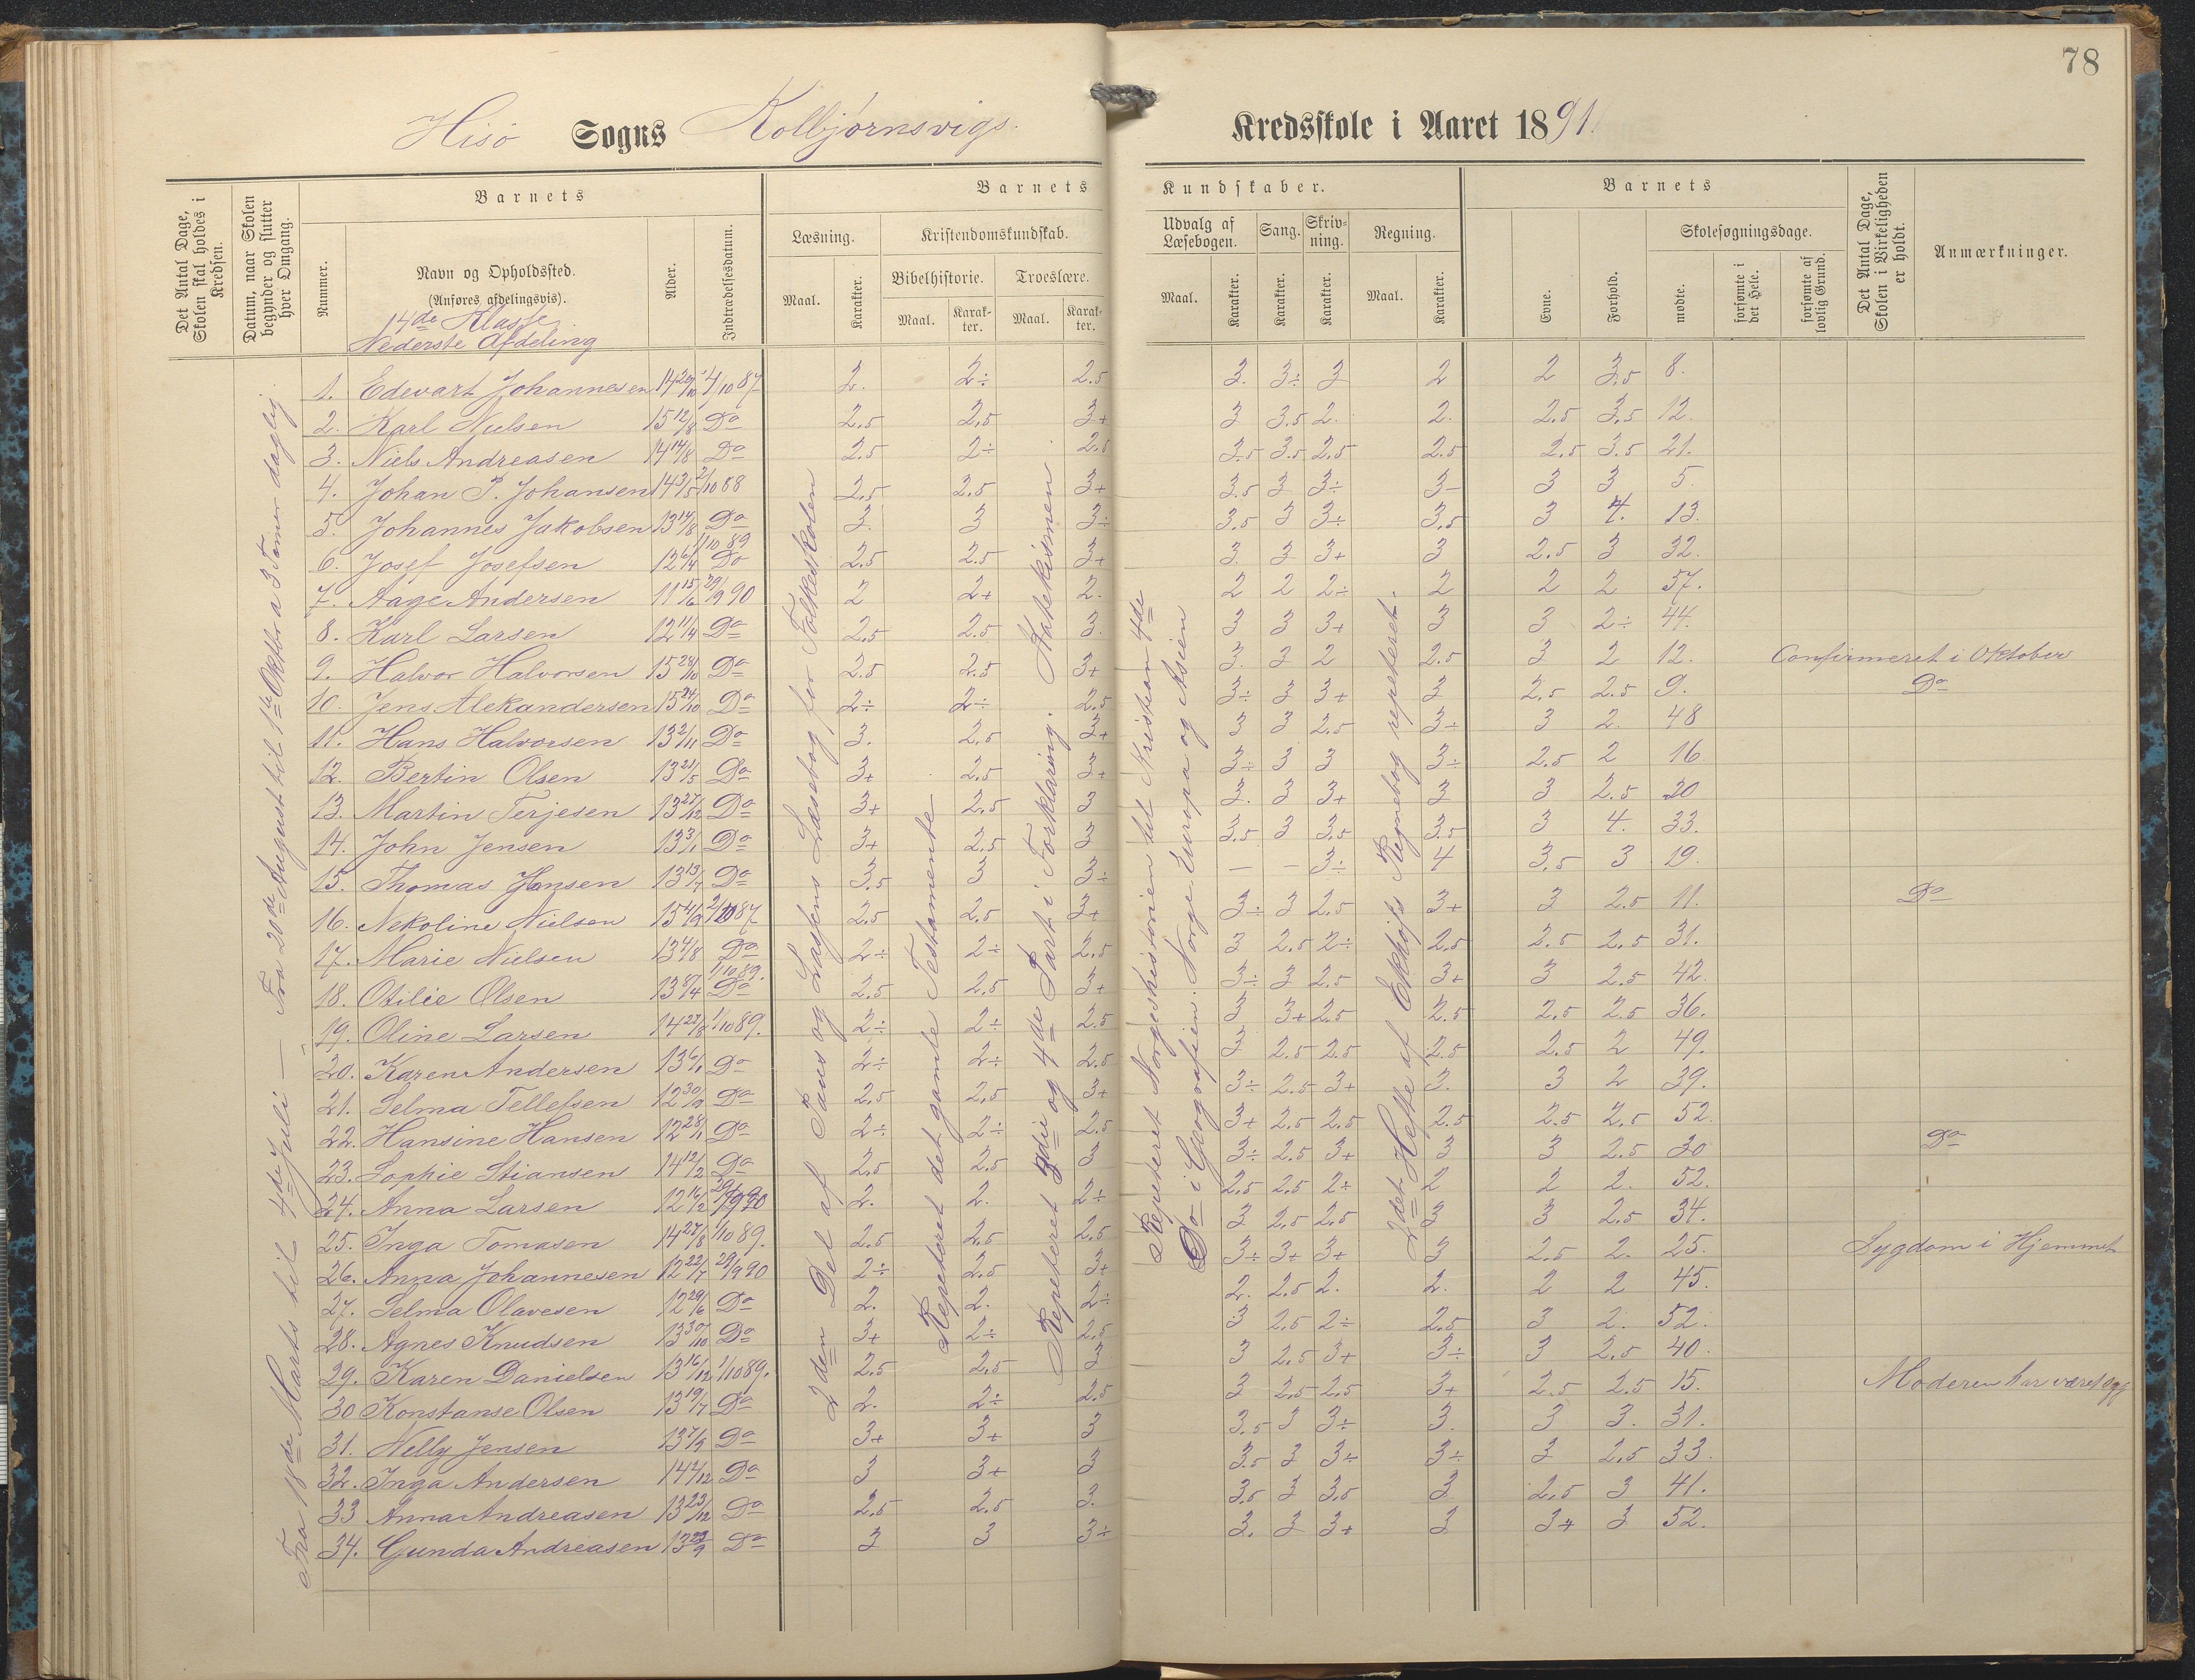 78
Hisö Sogns Kolbjørnsvigs. Kredsskole i Aaret 1891.
Det Antal Dage, Skolen skal holdes i Kredsen.
Datum, naar Skolen begynder og slutter hver Omgang.
Barnets
Nummer.
Navn og Opholdssted.
(Anføres afdelingsvis).
14de Klasse
Nederste Afdeling
Alder.
Indtrædelsesdatum.
Barnets Kundskaber.
Læsning.
Maal. Karakter.
Kristendomskundskab.
Bibelhistorie. Troeslære.
Maal. Karakter. Maal. Karakter.
Udvalg af Læsebogen. Sang. Skrivning. Regning.
Maal. Karakter. Karakter. Karakter. Maal. Karakter.
Barnets
Evne. Forhold.
Skolesøgningsdage.
mødte. forsømte i det Hele. forsømte af lovlig Grund.
Det Antal Dage, Skolen i Virkeligheden er holdt.
Anmærkninger.
Fra 18de Marts til 4de Juli — Fra 20de August til 1ste Oktbr a 3 Timer daglig.
2den Del af Paus og Lassens Læsebog for Folkeskolen
Repeteret det gamle Testamente
Repeteret 3die og 4de Part i Forklaring. Katekismen
Repeteret Norgeshistorien til Kristian 4de
Do i Geografien: Norge Europa og Asien
2det Hefte af Ekhoffs Regnebog repeteret.
1. Edevart Johannesen 14 29/10 4/10 87 2. 2÷ 2.5 3. 3÷ 3 2 2 3.5 8.
2. Karl Nielsen 15 12/8 Do 2.5 2.5 3+ 3 3.5 2. 2. 2.5 3.5 12.
3. Niels Andreasen 14 14/8 Do 2.5 2÷ 2.5 3.5 3.5 2.5 2.5 2.5 3.5 21.
4. Johan P. Johansen 14 3/5 2/10 88 2.5 2.5 3+ 3.5 3 3÷ 3- 3 3 5.
5. Johannes Jakobsen 13 14/8 Do 3. 3 3÷ 3.5 3 3÷ 3.5 3 4. 13.
6. Josef Josefsen 12 6/4 1/10 89 Do 2.5 2.5 3+ 3. 3 3+ 3 2.5 3 32.
7. Aage Andersen 11 15/6 29/9 90 2 2+ 2. 2 2 2÷ 2 2 2 57.
8. Karl Larsen 12 11/4 Do 2.5 2.5 3. 3 3 3+ 3 3 2÷ 44.
9. Halvor Halvorsen 15 28/10 Do 2.5 2.5 3+ 3. 3 2 2.5 3 2 12. Confirmeret i Oktober
10. Jens Alekandersen 15 24/10 Do 2÷ 2÷ 2.5 3÷ 3 3+ 3 2.5 2.5 9. Do
11. Hans Halvorsen 13 2/11 Do 3. 2.5 3+ 3 3 2.5 3÷ 3 2. 48
12. Bertin Olsen 13 21/5 Do 3+ 2.5 3+ 3÷ 3 3 3÷ 2.5 2 16
13. Martin Terjesen 13 27/12 Do 3+ 2.5 3 3. 3 3+ 3 3 2.5 20
14. John Jensen 13 3/1 Do 3+ 2.5 3 3.5 3 3.5 3.5 3 4. 33.
15. Thomas Hansen 13 13/7 Do 3.5 3 3÷ — — 3÷ 4 3.5 3 19.
16. Nekoline Nielsen 15 4/9 2/10 87 2.5 2.5 3+ 3÷ 3 2.5 3+ 3 2.5 11. Do
17. Marie Nielsen 13 4/8 Do 2÷ 2÷ 2.5 3 2.5 2÷ 2.5 2.5 2.5 31.
18. Otilie Olsen 13 8/4 1/10 89. Do 2.5 2.5 3+ 3÷ 3 2.5 3+ 3 2.5 42.
19. Oline Larsen 14 27/8 1/10 89. 2÷ 2÷ 2.5 3 3+ 2.5 2.5 2.5 2.5 36.
20. Karen Andersen 13 6/1 Do 2÷ 2÷ 2.5 3 2.5 2.5 2.5 2.5 2 49.
21. Selma Tellefsen 12 30/9 Do 2.5 2.5 3+ 3÷ 2.5 3+ 3. 3 2 39.
22. Hansine Hansen 12 28/11 Do 2÷ 2÷ 2.5 3+ 2.5 2.5 2.5 2.5 2.5 52.
23. Sophie Stiansen 14 12/2 Do 2.5 2.5 3 3÷ 2.5 3+ 3 3 2.5 30 Do
24. Anna Larsen 12 16/2 29/9 90 2. 2. 2÷ 2.5 2.5 2÷ 2 2 2. 52.
25. Inga Tomasen 14 27/8 1/10 89. 2.5 2.5 2.5 3 2.5 2.5 3 3 2.5 34.
26. Anna Johannesen 12 22/7 29/9 90 2÷ 2.5 3+ 3÷ 3+ 3+ 3 2.5 2. 25. Sygdom i Hjemmet
27. Selma Olavesen 12 29/6 Do 2. 2. 2÷ 2. 2.5 2. 2. 2 2 45.
28. Agnes Knudsen 13 30/10 Do 3+ 2÷ 2.5 3 2.5 2÷ 2.5 3 2. 52.
29. Karen Danielsen 13 16/12 1/10 89. 2.5 2.5 3 3 2.5 3+ 3÷ 3 2.5 40.
30 Konstanse Olsen 13 19/7 Do 2. 2÷ 2.5 3 2.5 2.5 3+ 2.5 2.5 15. Moderen har været syg
31. Nelly Jensen 13 7/9 Do 3+ 3+ 3 3.5 3 3÷ 3. 3 3. 31.
32. Inga Andersen 14 4/12 Do 3 3+ 3 3.5 3 3÷ 3÷ 3 2.5 33.
33 Anna Andreasen 13 23/12 Do 2.5 2.5 3. 3.5 3 3.5 3 2.5 3 41.
34. Gunda Andreasen 13 22/9 Do 3 3 3÷ 3. 3 3+ 3 3+ 3 52.